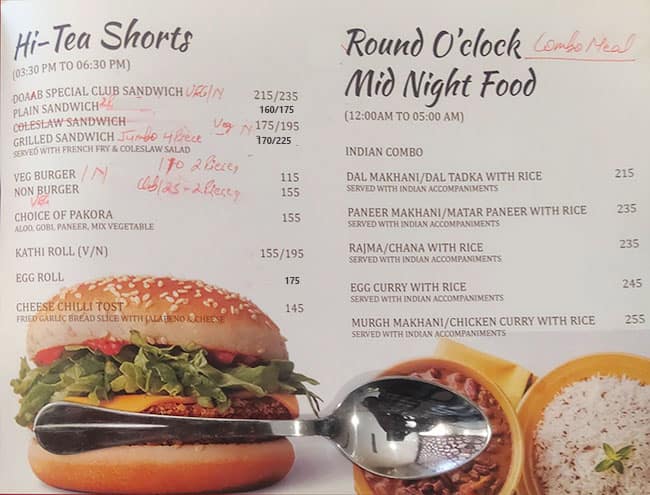 Hi-Tea Shorts
(03:30 PM TO 06:30 PM)
DOAAB SPECIAL CLUB SANDWICH VEG/N 215/235
PLAIN SANDWICH 160/175
COLESLAW SANDWICH Veg N 175/195
GRILLED SANDWICH Jumbo 4 Piece 170/225
SERVED WITH FRENCH FRY & COLESLAW SALAD
110 2 Pieces
VEG BURGER /N 115
Club/25-2 Pieces
NON BURGER 155
Veg
CHOICE OF PAKORA 155
ALOO, GOBI, PANEER, MIX VEGETABLE
KATHI ROLL (V/N) 155/195
EGG ROLL 175
CHEESE CHILLI TOST 145
FRIED GARLIC BREAD SLICE WITH JALABENO & CHEESE
Round O'clock Combo Meal
Mid Night Food
(12:00AM TO 05:00 AM)
INDIAN COMBO
DAL MAKHANI/DAL TADKA WITH RICE 215
SERVED WITH INDIAN ACCOMPANIMENTS
PANEER MAKHANI/MATAR PANEER WITH RICE 235
SERVED WITH INDIAN ACCOMPANIMENTS
RAJMA/CHANA WITH RICE 235
SERVED WITH INDIAN ACCOMPANIMENTS
EGG CURRY WITH RICE 245
SERVED WITH INDIAN ACCOMPANIMENTS
MURGH MAKHANI/CHICKEN CURRY WITH RICE 255
SERVED WITH INDIAN ACCOMPANIMENTS